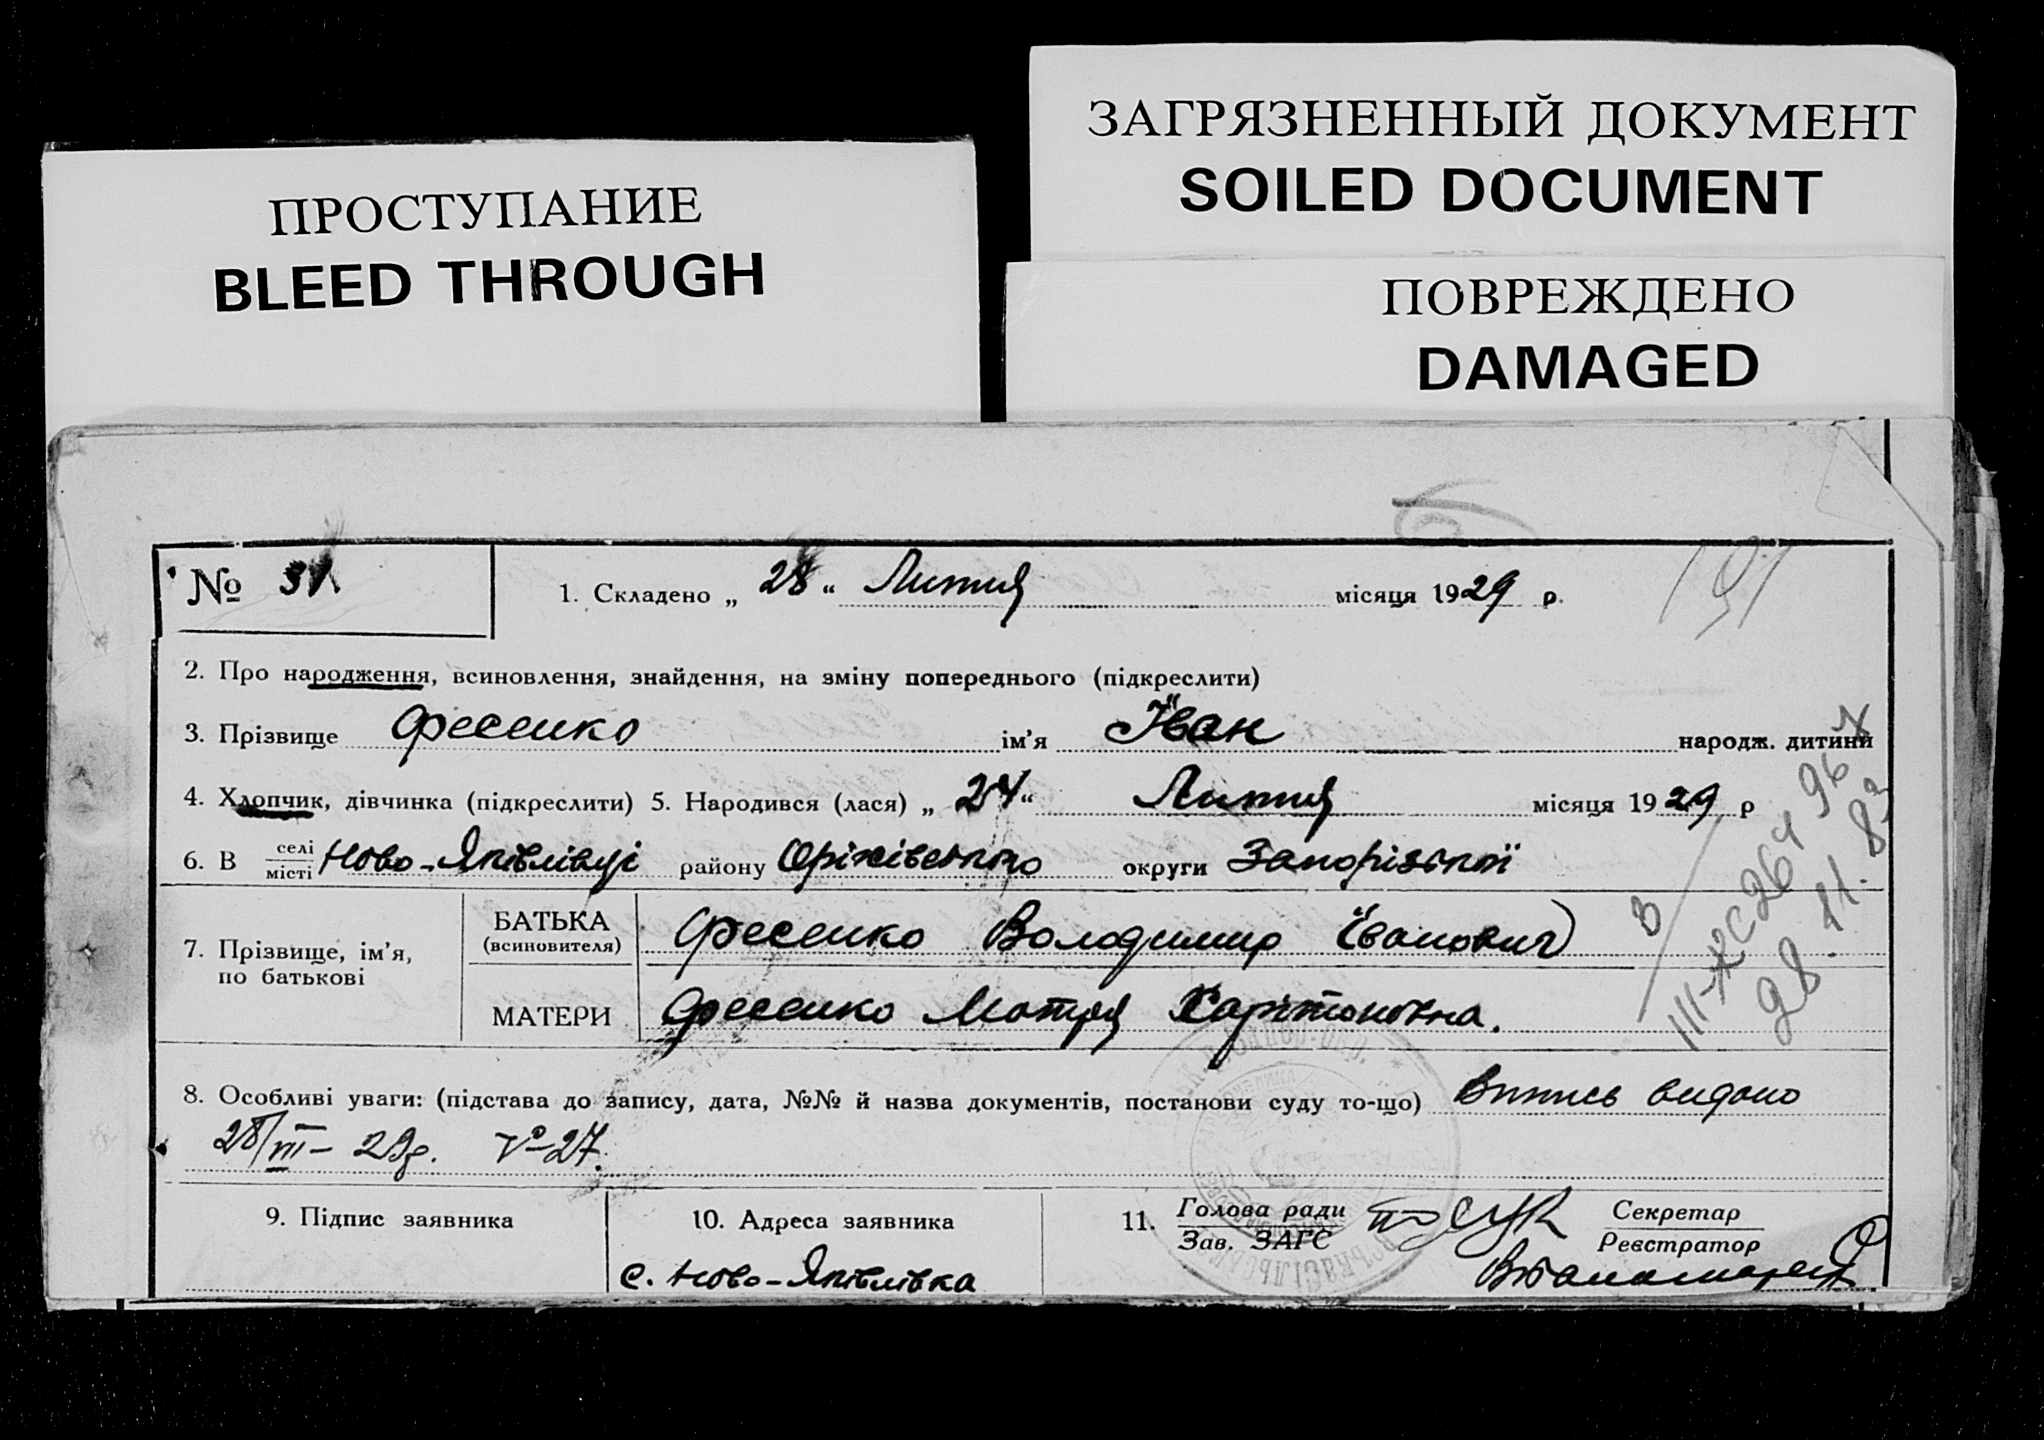 ЗАГРЯЗНЕННЫЙ ДОКУМЕНТ
SOILED DOCUMENT
ПРОСТУПАНИЕ
BLEED THROUGH
ПОВРЕЖДЕНО
DAMAGED
№ 31 1. Складено „ 28 “ Лютня місяця 1929 р.
191
2. Про народження, всиновлення, знайдення, на зміну попереднього (підкреслити)
3. Прізвище Фесенко ім'я Іван народж. дитини
4. Хлопчик, дівчинка (підкреслити) 5. Народився (лася) „ 24 “ Лютня місяця 1929 р
6. В селі/місті Ново-Яківлівці району Оріхівського округи Запорізької
7. Прізвище, ім'я, по батькові
БАТЬКА (всиновителя) Фесенко Володимир Іванович
МАТЕРИ Фесенко Мотря Харітоновна.
28.11.83
8. Особливі уваги: (підстава до запису, дата, №№ й назва документів, постанови суду то-що) Випись видано
28/III-29р. №27.
9. Підпис заявника 10. Адреса заявника 11. Голова ради / Зав. ЗАГС Секретар / Реєстратор
с. Ново-Яківлівка